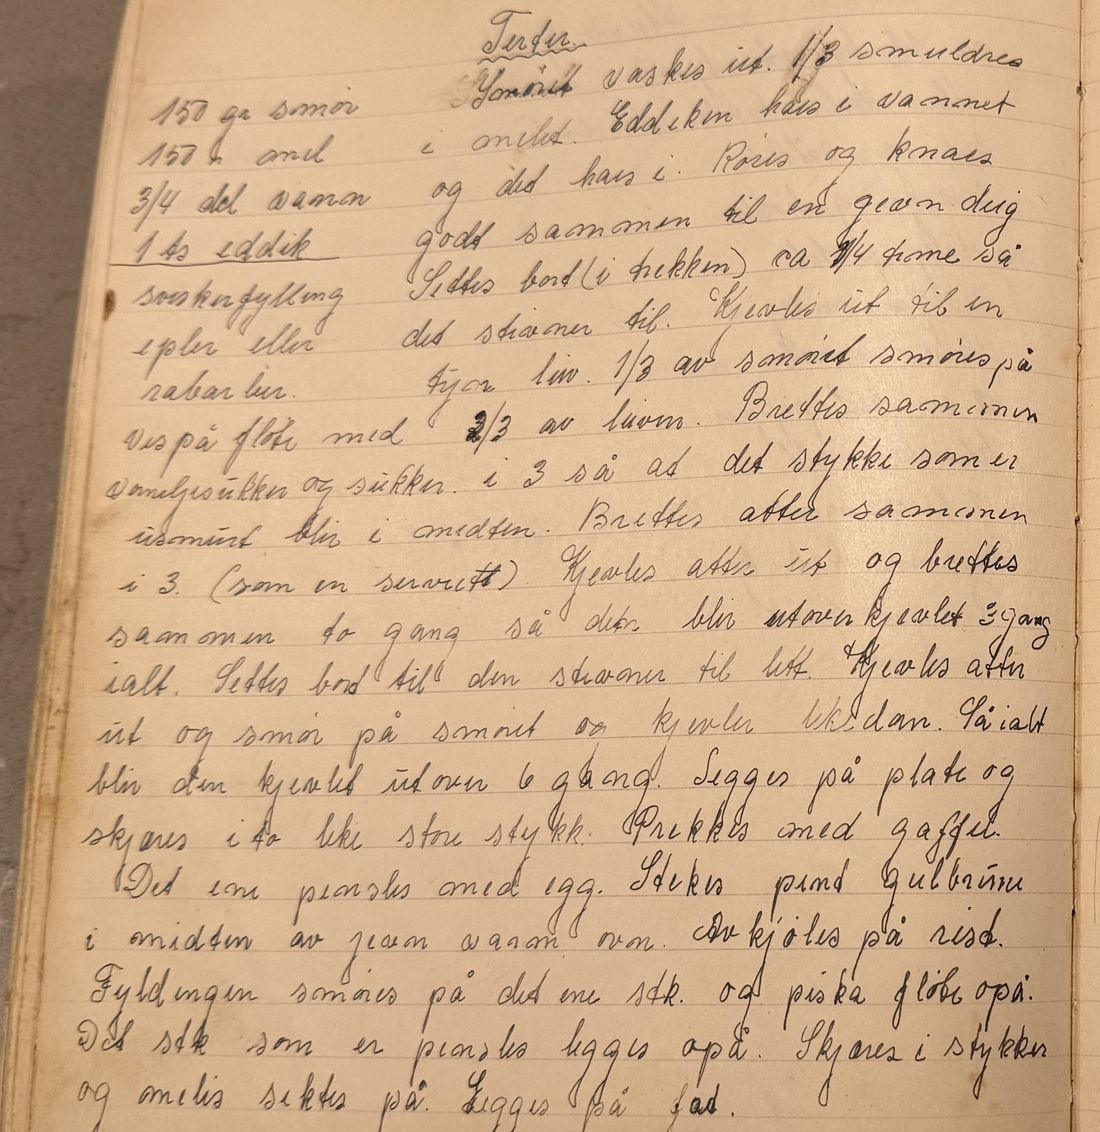 Terter.
150 gr smør
150 " mel
3/4 del vann
1 ts eddik
sviskefylling
epler eller
rabarber.
vispå fløte med
vaniljesukker og sukker.
Smøret vaskes ut. 1/3 smuldres
i melet. Eddiken haes i vannet
og det haes i. Røres og knaes
godt sammen til en gevn deig
Settes bort (i trekken) ca 1/4 time så
det stivner til. Kjevles ut til en
tynn leiv. 1/3 av smøret smøres på
2/3 av leiven. Brettes sammen
i 3 så at det stykke som er
usmurt blir i midten. Brettes atter sammen
i 3. (som en serviett). Kjevles atter ut og brettes
sammen to gang så den blir utover kjevlet 3 gang
ialt. Settes bort til den stivner til lett. Kjevles atter
ut og smør på smøret og kjevler likedan. Så ialt
blir den kjevlet utover 6 gang. Legges på plate og
skjæres i to like store stykk. Prekkes med gaffel.
Det ene pensles med egg. Stekes pent gulbrune
i midten av jevn varm ovn. Avkjøles på rist.
Fyldingen smøres på det ene stk. og piska fløte opå.
Det stk som er pensles legges opå. Skjæres i stykker
og melis siktes på. Legges på fat.